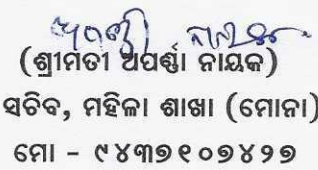 ଅପର୍ଣ୍ଣା ନାୟକ
(ଶ୍ରୀମତୀ ଅପର୍ଣ୍ଣା ନାୟକ)
ସଚିବ, ମହିଳା ଶାଖା (ମୋନା)
ମୋ - ୯୪୩୭୧୦୭୪୨୭